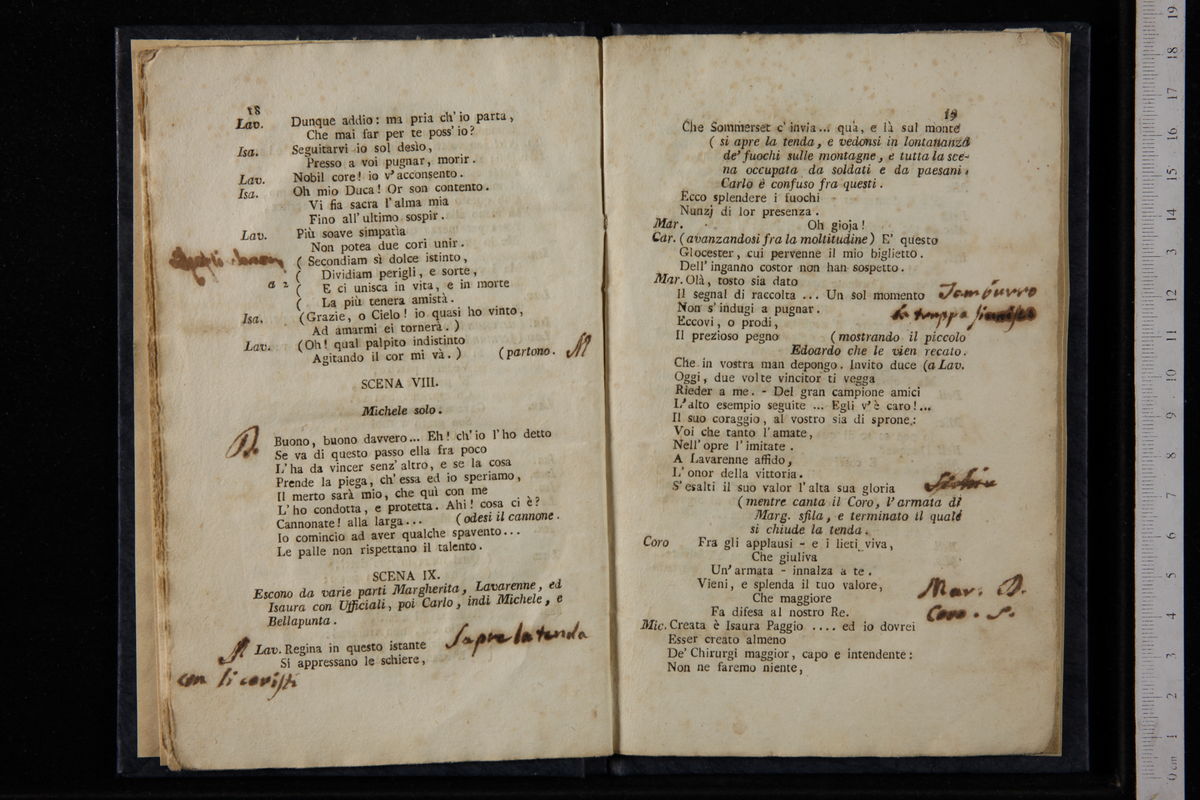 18
Lav. Dunque addio: ma pria ch' io parta,
Che mai far per te poss' io?
Isa. Seguitarvi io sol desìo,
Presso a voi pugnar, morir.
Lav. Nobil core! io v' acconsento.
Isa. Oh mio Duca! Or son contento.
Vi fia sacra l' alma mia
Fino all' ultimo sospir.
Lav. Più soave simpatìa
Non potea due cori unir.
( Secondiam sì dolce istinto,
( Dividiam perigli, e sorte,
a 2 ( E ci unisca in vita, e in morte
( La più tenera amistà.
Isa. (Grazie, o Cielo! io quasi ho vinto,
Ad amarmi ei tornerà. )
Lav. (Oh! qual palpito indistinto
Agitando il cor mi và. ) (partono. M
SCENA VIII.
Michele solo.
D. Buono, buono davvero... Eh! ch' io l' ho detto
Se va di questo passo ella fra poco
L' ha da vincer senz' altro, e se la cosa
Prende la piega, ch' essa ed io speriamo,
Il merto sarà mio, che quì con me
L' ho condotta, e protetta. Ahi! cosa ci è?
Cannonate! alla larga... (odesi il cannone.
Io comincio ad aver qualche spavento...
Le palle non rispettano il talento.
SCENA IX.
Escono da varie parti Margherita, Lavarenne, ed
Isaura con Ufficiali, poi Carlo, indi Michele, e
Bellapunta.
Lav. Regina in questo istante S'apre la tenda
Si appressano le schiere,
con li coristi
19
Che Sommerset c' invia... quà, e là sul monte
( si apre la tenda, e vedonsi in lontananza
de' fuochi sulle montagne, e tutta la sce-
na occupata da soldati e da paesani.
Carlo è confuso fra questi.
Ecco splendere i fuochi
Nunzj di lor presenza.
Mar. Oh gioja!
Car. (avanzandosi fra la moltitudine) E' questo
Glocester, cui pervenne il mio biglietto.
Dell' inganno costor non han sospetto.
Mar. Olà, tosto sia dato
Il segnal di raccolta ... Un sol momento Tamburro
Non s' indugi a pugnar. la truppa
Eccovi, o prodi,
Il prezioso pegno (mostrando il piccolo
Edoardo che le vien recato.
Che in vostra man depongo. Invito duce (a Lav.
Oggi, due volte vincitor ti vegga
Rieder a me. - Del gran campione amici
L' alto esempio seguite ... Egli v' è caro!...
Il suo coraggio, al vostro sia di sprone:
Voi che tanto l' amate,
Nell' opre l' imitate.
A Lavarenne affido,
L' onor della vittoria.
S' esalti il suo valor l' alta sua gloria
(mentre canta il Coro, l' armata di
Marg. sfila, e terminato il quale
si chiude la tenda.
Coro Fra gli applausi - e i lieti viva,
Che giuliva
Un' armata - innalza a te.
Vieni, e splenda il tuo valore, Mar. D.
Che maggiore
Fa difesa al nostro Re. Coro. S.
Mic. Creata è Isaura Paggio .... ed io dovrei
Esser creato almeno
De' Chirurgi maggior, capo e intendente:
Non ne faremo niente,